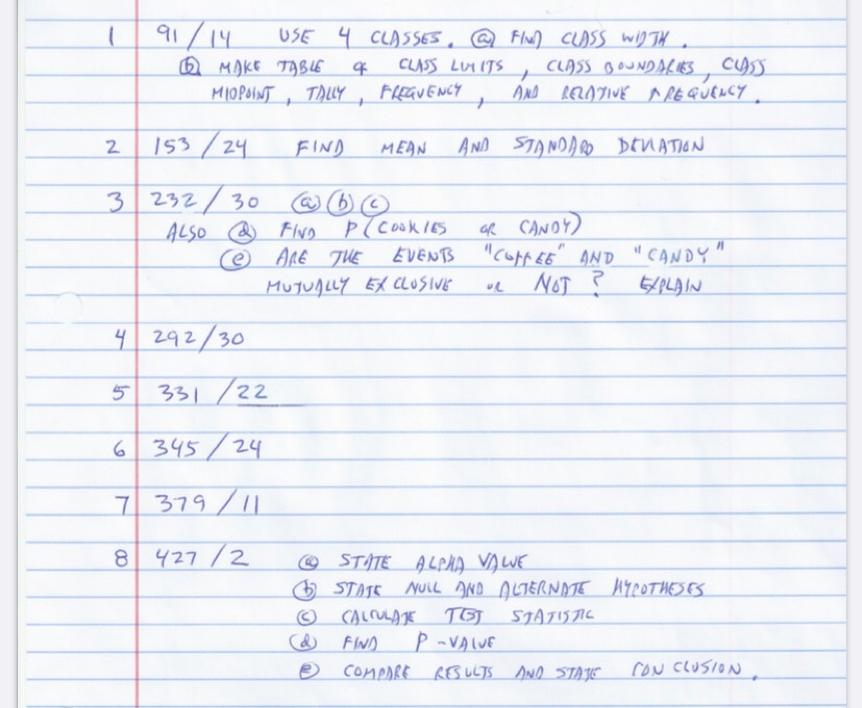 1 91/14 USE 4 CLASSES. (a) FIND CLASS WIDTH.
(b) MAKE TABLE OF CLASS LIMITS, CLASS BOUNDARIES, CLASS
MIDPOINT, TALLY, FREQUENCY, AND RELATIVE FREQUENCY.
2 153/24 FIND MEAN AND STANDARD DEVIATION
3 232/30 (a) (b) (c)
ALSO (d) FIND P(COOKIES OR CANDY)
(e) ARE THE EVENTS "COFFEE" AND "CANDY"
MUTUALLY EXCLUSIVE OR NOT? EXPLAIN
4 292/30
5 331/22
6 345/24
7 379/11
8 427/2 (a) STATE ALPHA VALUE
(b) STATE NULL AND ALTERNATE HYPOTHESES
(c) CALCULATE TEST STATISTIC
(d) FIND P-VALUE
(e) COMPARE RESULTS AND STATE CONCLUSION.